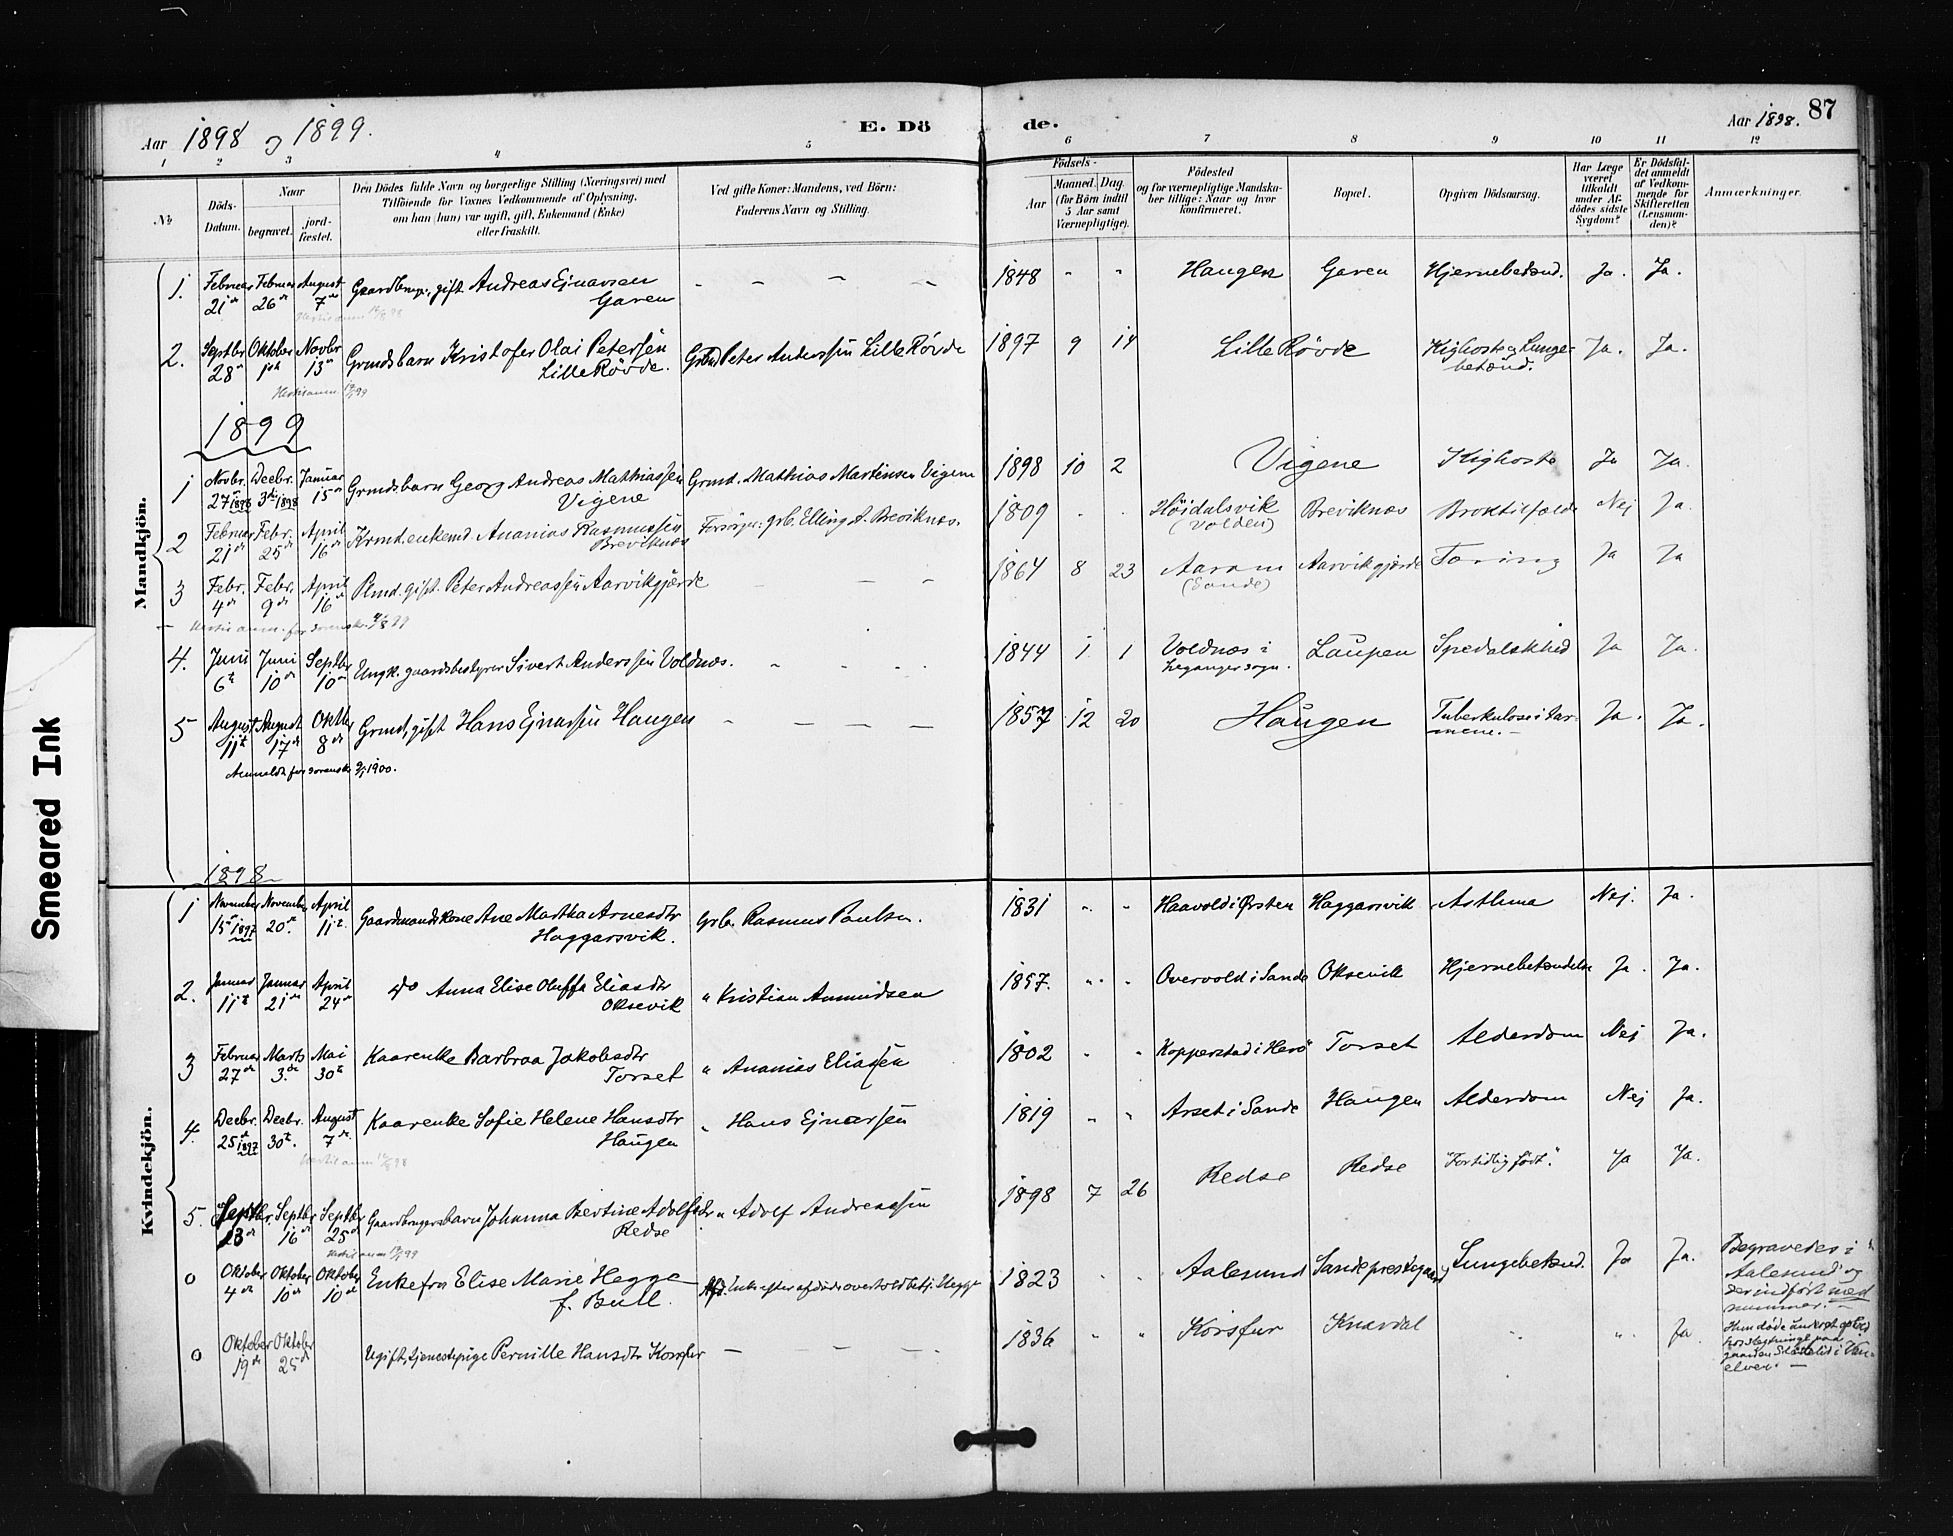 Aar 1898 og 1899.
E. Dö
de.
Aar 1898. 87
1 2 3 4 5 6 7 8 9 10 11 12
№
Döds-
Datum.
Naar
begravet.
jord-
fæstet.
Den Dödes fulde Navn og borgerlige Stilling (Næringsvei) med
Tilföiende for Voxnes Vedkommende af Oplysning,
om han (hun) var ugift, gift, Enkemand (Enke)
eller fraskilt.
Ved gifte Koner: Mandens, ved Börn:
Faderens Navn og Stilling.
Födsels-
Aar
Maaned. Dag.
(for Börn indtil
5 Aar samt
Værnepligtige).
Födested
og for værnepligtige Mandska-
ber tillige: Naar og hvor
konfirmeret.
Bopæl.
Opgiven Dödsaarsag.
Har Læge
været
tilkaldt
under Af-
dödes sidste
Sygdom?
Er Dödsfal-
det anmeldt
af Vedkom-
mende for
Skifteretten
(Lensman-
den)?
Anmærkninger.
Mandkjön.
1. Februar 21de Februar 26de August 7de Gaardbruger, gift Andreas Ejnarsen Garen - - - - 1848 " " Haugen Garen Hjernebetænd. Ja. Ja.
2. Septbr 28de Oktober 1ste Novbr 13de Grmdsbarn Kristofer Olai Petersen Lille Rövde. Grbd Peter Anderssen Lille Rövde 1897 9 14 Lille Rövde Kighoste og Lunge-
betænd. Ja. Ja.
1899
1 Novbr. 27de 1898 Decbr. 3die 1898 Januar 15de Grmdsbarn Georg Andreas Mathiassen Vigene Grmd. Mathias Martinsen Vigene 1898 10 2 Vigene Kighoste Ja Ja.
2 Februar 21de Febr. 25de April 16de Krmd. enkemd. Ananias Rasmussen Breviknæs Forsörger: grb. Elling A. Breviknæs. 1809 . . Höidalsvik
(Volden) Breviknæs Broktilfælde Nej Ja.
3 Febr. 4de Febr. 9de April 16de Plmd. gift. Peter Andreassen Aarvikgjærde - - - 1864 8 23 Aaram
(Sande) Aarvikgjærde Tæring Ja Ja
4. Juni 6te Juni 10de Septbr 10de Ungk. gaardsbestyrer Sivert Anderssen Voldnæs. - - - - 1844 1 1 Voldnæs i
Leganger sogn. Laupen Spedalskhed Ja Ja.
5 August 11te August 17de Oktbr 8de Grmd, gift Hans Ejnarsen Haugen - - - - 1857 12 20 Haugen Tuberkulose i Tar-
mene. - Ja. Ja.
1898
Kvindekjön.
1 November 15de 1897 November 20de April 11te Gaardmandskone Ane Martha Arnesdtr Haggarsvik. Grb. Rasmus Paulsen. 1831 " " Haavold i Örsten Haggarsvik Asthma Nej. Ja.
2. Januar 11te Januar 21de April 24de do Anna Elise Oluffa Eliasdtr Oksevik " Kristian Amundsen 1857. " . Overvold i Sande Oksevik Hjernebetændelse Ja. Ja.
3 Februar 27de Marts 3die Mai 30te Kaarenke Barbraa Jakobsdtr Torset " Ananias Eliassen 1802 . . Kopperstad i Herö Torset Alderdom Nej Ja.
4. Decbr. 25te 1897 Decbr. 30te. August 7de Kaarenke Sofie Helene Hansdtr Haugen " Hans Ejnarsen 1819 " " Arset i Sande Haugen Alderdom Nej Ja.
5. Septbr. 13de Septbr 16de Septbr 25de Gaardbrugersbarn Johanna Bertine Adolfsdtr Redse " Adolf Andreassen 1898 7 26 Redse Redse "For tidlig födt". Ja Ja.
0 Oktober 4de Oktober 10de Oktober 10de Enkefru Elise Marie Hegge f. Bull. 1823 . . Aalesund Sande prestegaard Lungebetænd. Ja Ja. Begravedes i
Aalesund og
der indfört med
nummer. -
0 Oktober 19de Oktober 25de Ugift, tjenestepige Pernille Hansdtr Korsfur - - - - 1836 " " Korsfur Knardal Ja.
Smeared Ink